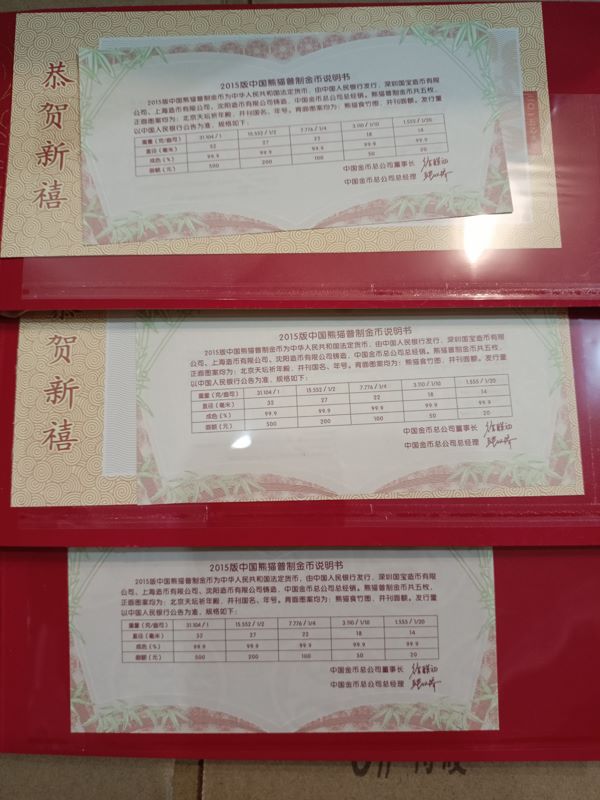 恭贺新禧
2015版中国熊猫普制金币说明书
2015版中国熊猫普制金币为中华人民共和国法定货币，由中国人民银行发行，深圳国宝造币有限
公司、上海造币有限公司、沈阳造币有限公司铸造，中国金币总公司总经销。熊猫普制金币共五枚，
正面图案均为：北京天坛祈年殿，并刊国名、年号。背面图案均为：熊猫食竹图，并刊面额。发行量
以中国人民银行公告为准，规格如下：
重量（克/盎司） 31.104 / 1 15.552 / 1/2 7.776 / 1/4 3.110 / 1/10 1.555 / 1/20
直径（毫米） 32 27 22 18 14
成色（%） 99.9 99.9 99.9 99.9 99.9
面额（元） 500 200 100 50 20
中国金币总公司董事长
中国金币总公司总经理
恭贺新禧
2015版中国熊猫普制金币说明书
2015版中国熊猫普制金币为中华人民共和国法定货币，由中国人民银行发行，深圳国宝造币有限
公司、上海造币有限公司、沈阳造币有限公司铸造，中国金币总公司总经销。熊猫普制金币共五枚，
正面图案均为：北京天坛祈年殿，并刊国名、年号。背面图案均为：熊猫食竹图，并刊面额。发行量
以中国人民银行公告为准，规格如下：
重量（克/盎司） 31.104 / 1 15.552 / 1/2 7.776 / 1/4 3.110 / 1/10 1.555 / 1/20
直径（毫米） 32 27 22 18 14
成色（%） 99.9 99.9 99.9 99.9 99.9
面额（元） 500 200 100 50 20
中国金币总公司董事长
中国金币总公司总经理
2015版中国熊猫普制金币说明书
2015版中国熊猫普制金币为中华人民共和国法定货币，由中国人民银行发行，深圳国宝造币有限
公司、上海造币有限公司、沈阳造币有限公司铸造，中国金币总公司总经销。熊猫普制金币共五枚，
正面图案均为：北京天坛祈年殿，并刊国名、年号。背面图案均为：熊猫食竹图，并刊面额。发行量
以中国人民银行公告为准，规格如下：
重量（克/盎司） 31.104 / 1 15.552 / 1/2 7.776 / 1/4 3.110 / 1/10 1.555 / 1/20
直径（毫米） 32 27 22 18 14
成色（%） 99.9 99.9 99.9 99.9 99.9
面额（元） 500 200 100 50 20
中国金币总公司董事长
中国金币总公司总经理